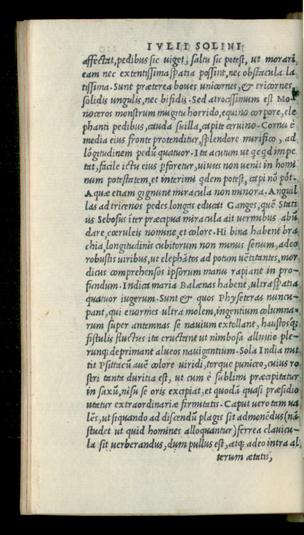 IVLII SOLINI
affectat, pedibus sic viget, saltu sic potest, ut morari
eam nec extentissima spatia possint, nec obstacula la
tissima. Sunt præterea boues unicornes, & tricornes,
solidis ungulis, nec bifidis. Sed atrocissimum est Mo
noceros monstrum mugitu horrido, equino corpore, ele
phanti pedibus, cauda suilla, capite ceruino. Cornu è
media eius fronte protenditur, splendore mirifico, ad
lōgitudinem pedū quatuor. Ita acutum ut qcqd impe
tat, facile ictu eius pforetur, uiuus non uenit in homi
num potestatem, et interimi qdem potest, capi nō pōt.
Aquæ etiam gignunt miracula non minora. Anguil
las ad tricenos pedes longas educat Ganges, quē Stati
us Sebosus iter præcipua miracula ait uermibus abū
dare, cœruleis nomine, et colore. Hi bina habent bra
chia, longitudinis cubitorum non minus senum, adeo
robustis uiribus, ut elephātos ad potum uētitantes, mor
dicus comprehensos ipsorum manu rapiant in pro
fundum. Indica maria Balænas habent, ultra spatia
quatuor iugerum. Sunt & quos Physeteras nuncu
pant, qui enormes ultra molem, ingentium columna
rum super antemnas se nauium extollant, haustosq;
fistulis fluctus ita eructant ut nimbosa alluuie ple
runq; deprimant alueos nauigantium. Sola India mit
tit Psittacū auē colore uiridi, torque puniceo, cuius ro
stri tanta duritia est, ut cum è sublimi præcipitatur
in saxū, nisu se oris excipiat, et quodā quasi præsidio
utatur extraordinariæ firmitatis. Caput uero tam ua
lēs, ut siquando ad discendū plagis sit admonēdus (nā
studet ut quid homines alloquantur) ferrea clauicu
la sit uerberandus, dum pullus est, atq; adeo intra al
terum ætatis,